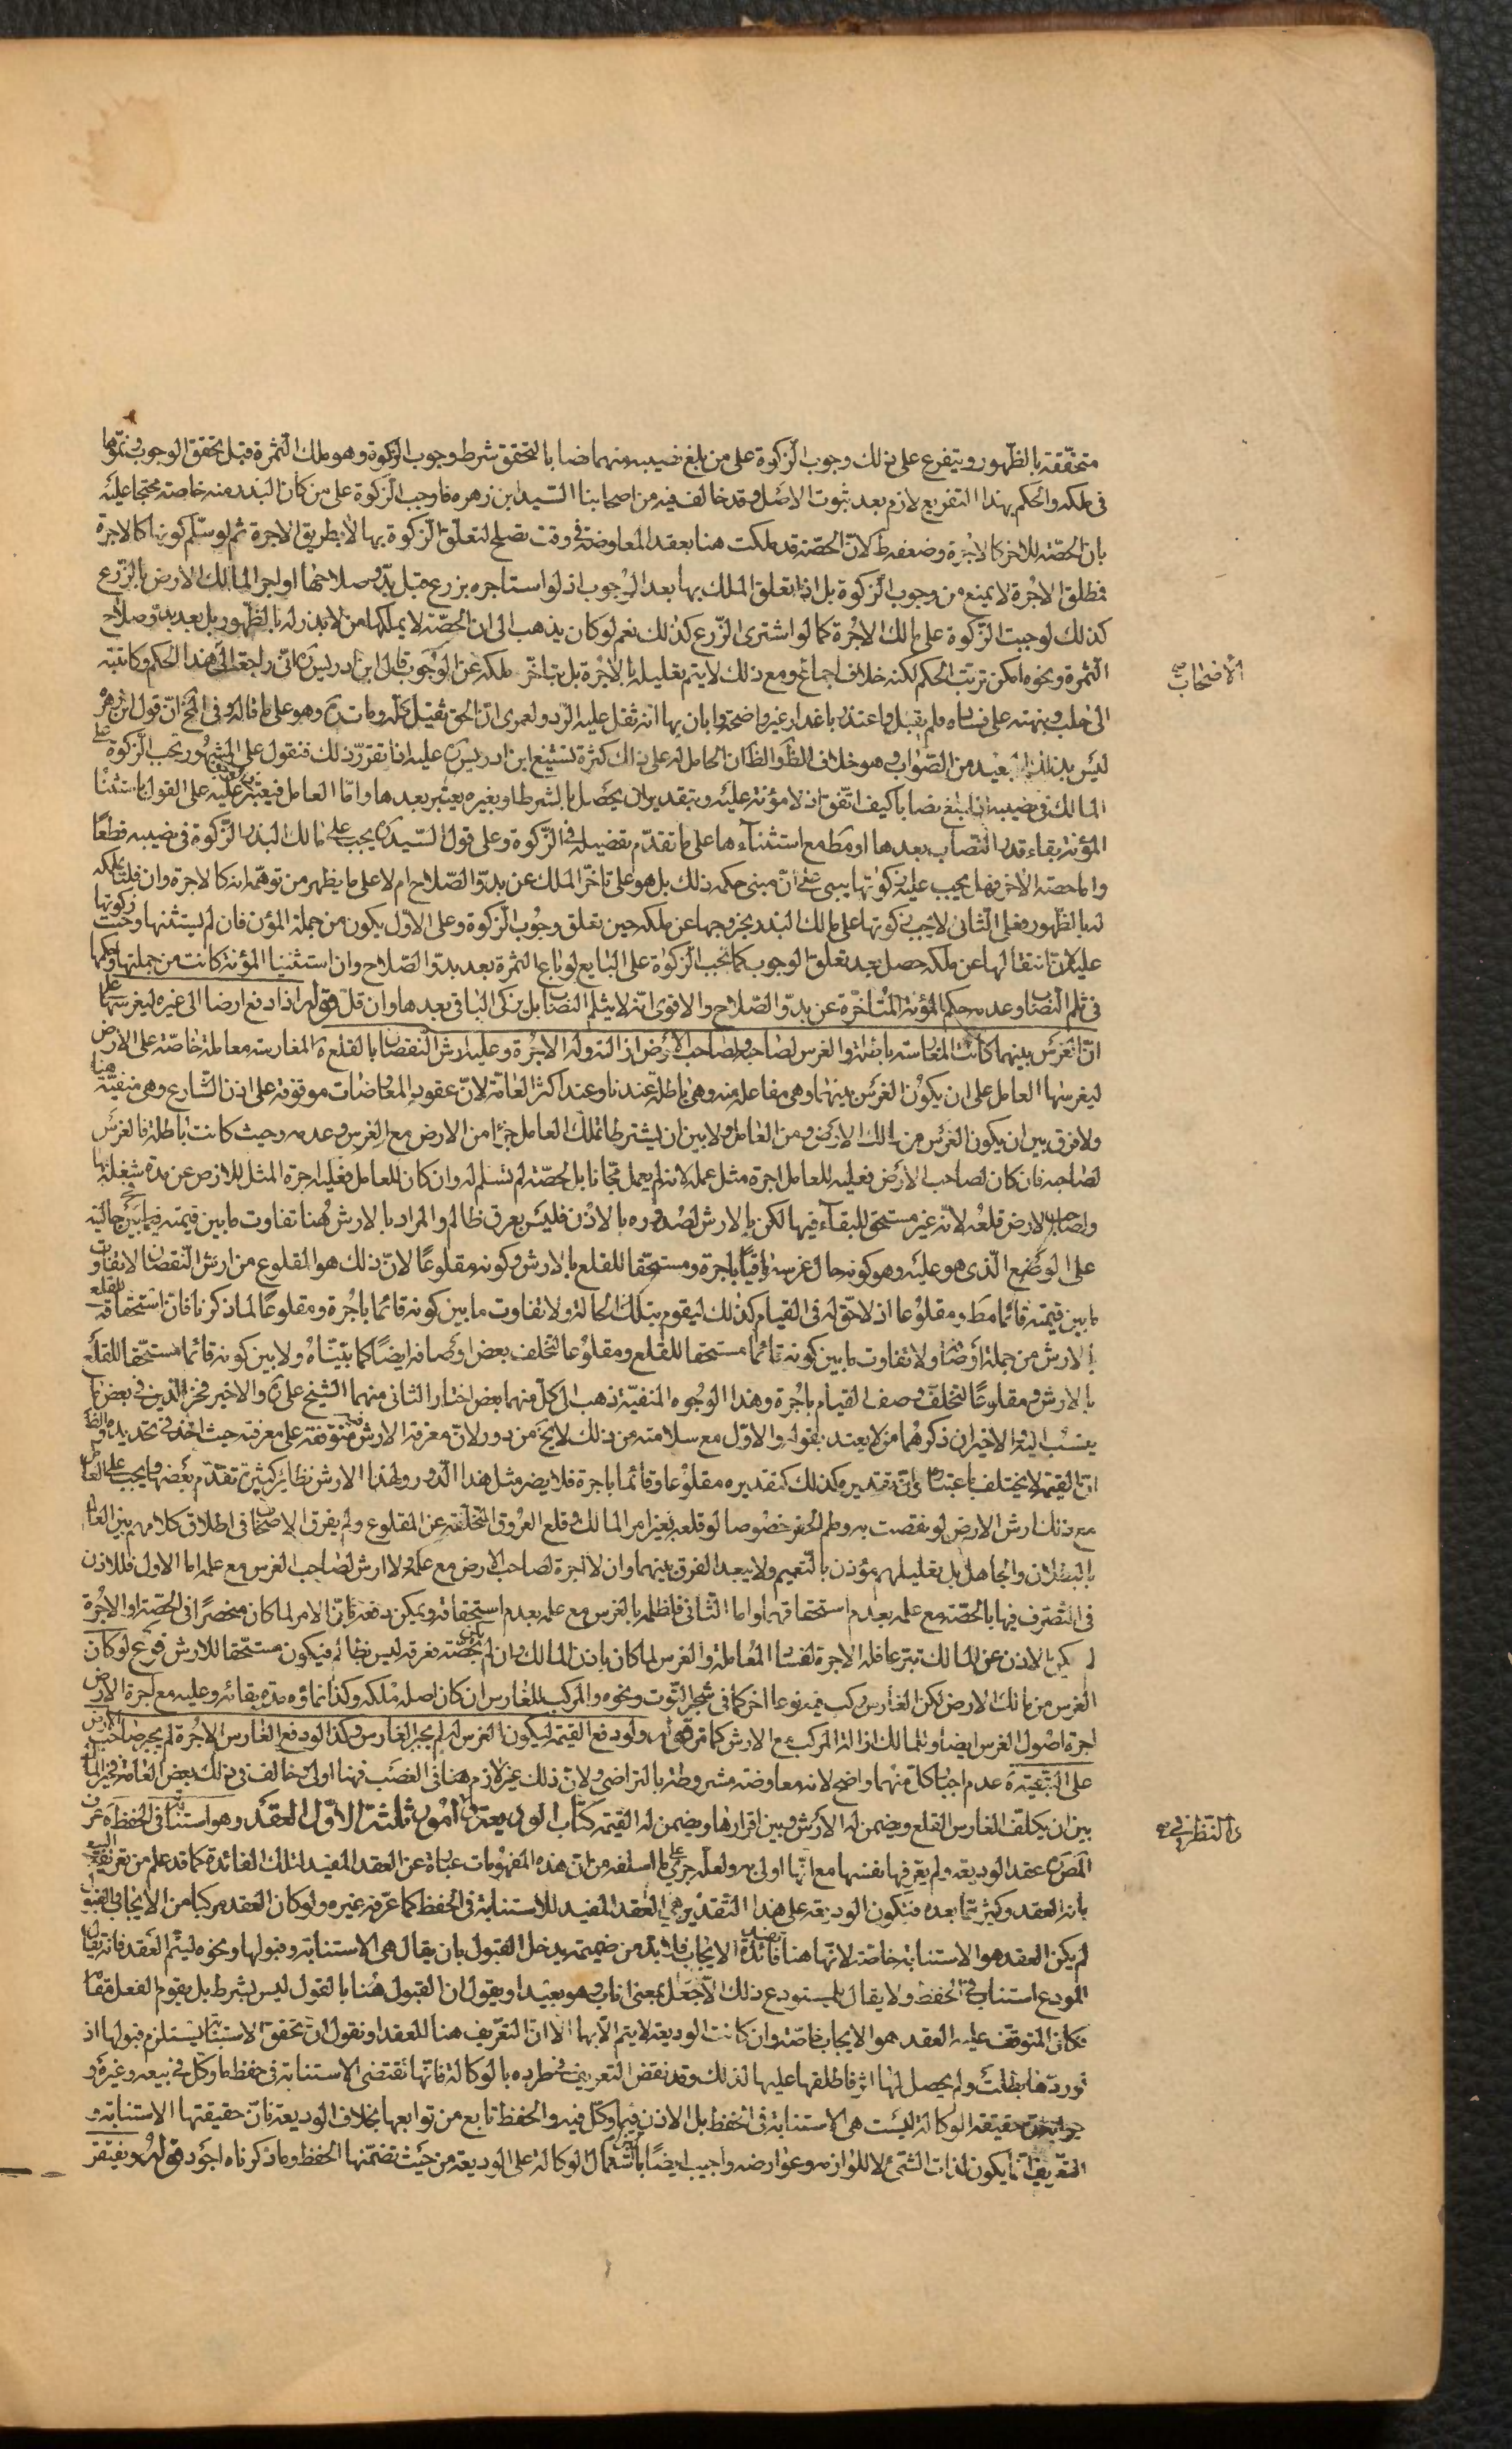 متحققة بالظهور ويتفرع على ذلك وجوب الزكوة على من بلغ نصيبه منهما نصابا لتحقق شرط وجوب الزكوة وهو ملك الثمرة قبل تحقق الوجوب ونموها
في ملكه والحكم بهذا التفريع لازم بعد ثبوت الاصل وقد خالف فيه من اصحابنا السيد ابن زهره فاوجب الزكوة على من كان البذر منه خاصة محتجا عليه
بان الحصة للاخر كالاجرة وضعفه ظ لان الحصة قد ملكت هنا بعقد المعاوضة في وقت تصلح لتعلق الزكوة بها لا بطريق الاجرة ثم لو سلم كونها كالاجرة
فمطلق الاجرة لا يمنع من وجوب الزكوة بل اذا تعلق الملك بها بعد الوجوب اذ لو استاجره بزرع قبل بدو صلاحها او اجر المالك الارض بالزرع
كذلك لوجبت الزكوة على مالك الاجرة كما لو اشترى الزرع كذلك نعم لو كان يذهب الى ان الحصة لا يملكها من لا بذر له بالظهور بل بعد بدو صلاح
الثمرة ونحوه امكن ترتب الحكم لكنه خلاف اجماع الاصحاب ومع ذلك لا يتم تعليله بالاجرة بل بتاخر ملكه عن الوجوب قال ابن ادريس ره اني راجعته في هذا الحكم وكاتبته
الى حلب ونبهته على فساده فلم يقبل واعتذر باعذار غير واضحة وابان بها انه ثقل عليه الرد ولعمرى ان الحق ثقيل كله ومات ره وهو على ما قاله وفى المخ ان قول ابن زهره
ليس بذلك البعيد من الصواب وهو خلاف الظ والظ ان الحامل له على ذلك كثرة تشنيع ابن ادريس ره عليه اذا تقرر ذلك فنقول على المشهور تجب الزكوة على
المالك في نصيبه اذا بلغ نصابا كيف اتفق اذ لا مؤنة عليه وبتقدير ان يحصل بالشرط او بغيره يعتبر بعدها واما العامل فيعتبر في وجوبها عليه على القول باستثناء
المؤنة بقاء قدر النصاب بعدها او مط مع استثناءها على ما تقدم تفصيله في الزكوة وعلى قول السيد ره يجب على مالك البذر الزكوة في نصيبه قطعا
واما حصة الاخر فهل يجب عليه زكوتها يبنى على ان مبنى حكمه ذلك بل هو على تاخر الملك عن بدو الصلاح ام لا على ما يظهر من توهمه انه كالاجرة وان قلنا بملكه
له بالظهور فعلى الثانى لا تجب زكوتها على مالك البذر بخروجها عن ملكه حين تعلق وجوب الزكوة وعلى الاول يكون من جملة المؤن فان لم نستثنها وجبت زكوتها
عليه لان انتقالها عن ملكه حصل بعد تعلق الوجوب كما تجب الزكوة على البايع لو باع الثمرة بعد بدو الصلاح وان استثنينا المؤنة كانت من جملتها وحكمها
في ثلم النصاب وعدمه حكم المؤنة المتاخرة عن بدو الصلاح والاقوى انه لا يثلم النصاب بل يزكى الباقى بعدها وان قل قوله اذا دفع ارضا الى غيره ليغرسها على
ان الغرس بينهما كانت المغارسة باطلة والغرس لصاحبه ولصاحب الارض ازالته وله الاجرة وعليه ارش النقصان بالقلع ه المغارسة معاملة خاصة على الارض
ليغرسها العامل على ان يكون الغرس بينهما وهى مفاعلة منه وهى باطلة عندنا وعند اكثر العامة لان عقود المعاوضات موقوفة على اذن الشارع وهى منفية هنا
ولا فرق بين ان يكون الغرس من مالك الارض ومن العامل ولا بين ان يشترطا تملك العامل جزءا من الارض مع الغرس وعدمه وحيث كانت باطلة فالغرس
لصاحبه فان كان لصاحب الارض فعليه للعامل اجرة مثل عمله لانه لم يعمل مجانا بل بحصة لم تسلم له وان كان للعامل فعليه اجرة المثل للارض عن مدة شغله لها
ولصاحب الارض قلعه لانه غير مستحق للبقاء فيها لكن بالارش لصدوره بالاذن فليس بعرق ظالم والمراد بالارش هنا تفاوت ما بين قيمته في حالتيه
على الوضع الذى هو عليه وهو كونه حال غرسه باقيا باجرة ومستحقا للقلع بالارش وكونه مقلوعا لان ذلك هو المقلوع من ارش النقصان لا تفاوت
ما بين قيمته قائما مط ومقلوعا اذ لا حق له في القيام كذلك ليقوم بتلك الحالة ولا تفاوت ما بين كونه قائما باجرة ومقلوعا لما ذكرنا فان استحقاقه للقلع
بالارش من جملة اوصافه ولا تفاوت ما بين كونه قائما مستحقا للقلع ومقلوعا لتخلف بعض اوصافه ايضا كما بيناه ولا بين كونه قائما مستحقا للقلع
بالارش ومقلوعا لتخلف وصف القيام باجرة وهذا الوجوه المنفية ذهب الى كل منهما بعض اختار الثانى منهما الشيخ على ره والاخير فخر الدين في بعض ما
ينسب اليه والاخيران ذكرهما من لا يعتد بقوله والاول مع سلامته من ذلك لا يخ من دور لان معرفة الارش فيه متوقفة على معرفته حيث اخذ في تحديده والظ
ان القيمة لا تختلف باعتباره وان تقديره كذلك كتقديره مقلوعا وقائما باجرة فلا يضر مثل هذا الدور ولهذا الارش نظائر كثيرة تقدم بعضها ويجب على العامل
مع ذلك ارش الارض لو نقصت به وطم الحفر خصوصا لو قلعه بغير امر المالك وقلع العروق المتخلفة عن المقلوع ولم يفرق الاصحاب في اطلاق كلامهم بين العالم
بالبطلان والجاهل بل تعليلهم مؤذن بالتعميم ولا يبعد الفرق بينهما وان لا اجرة لصاحب الارض مع علمه ولا ارش لصاحب الغرس مع علمه اما الاول فللاذن
في التصرف فيها بالحصة مع علمه بعدم استحقاقها واما الثانى فلظلمه بالغرس مع علمه بعدم استحقاقه ويمكن دفعه بان الامر لما كان منحصرا في الحصة او الاجرة
لم يكن الاذن عن المالك تبرعا فله الاجرة لفساد المعاملة والغرس لما كان باذن المالك وان لم يكن بحصة فعرقه ليس بظالم فيكون مستحقا للارش فرع لو كان
الغرس من مالك الارض لكن الغارس ركب فيه نوعا اخر كما في شجر التوت ونحوه والمركب للغارس ان كان اصله ملكه وكذا نماؤه مدة بقائه وعليه مع اجرة الارض
اجرة اصول الغرس ايضا وللمالك ازالة المركب مع الارش كما مر قوله ولو دفع القيمة ليكون الغرس له لم يجبر الغارس وكذا لو دفع الغارس الاجرة لم يجبر صاحب الارض
على التبقية ه عدم اجبار كل منهما واضح لانه معاوضة مشروطة بالتراضى ولان ذلك غير لازم هنا في الغصب فهنا اولى وخالف في ذلك بعض العامة فخير المالك
بين ان يكلف الغارس القلع ويضمن له الارش وبين اقرارها ويضمن له القيمة كتاب الوديعة والنظر في امور ثلثة الاول العقد وهو استنابة في الحفظ ه عرف
المص ره عقد الوديعة ولم يعرفها نفسها مع انها اولى به ولعله جرى على ما اسلفه من ان هذه المفهومات عبارة عن العقد المفيد لتلك الفائدة كما قد علم من تعريف البيع
بانه العقد وكثير مما بعده فتكون الوديعة على هذا التقدير هي العقد المفيد للاستنابة في الحفظ كما عرفه غيره ولو كان العقد مركبا من الايجاب والقبول
لم يكن العقد هو الاستنابة خاصة لانها هنا فائدة الايجاب فلا بد من ضميمة يدخل القبول بان يقال هى الاستنابة وقبولها ونحوه ليتم العقد فانه يقال
المودع استناب في الحفظ ولا يقال للمستودع ذلك الا بجعل بمعنى اناب وهو بعيد او يقول ان القبول هنا بالقول ليس بشرط بل يقوم الفعل مقامه
فكان المتوقف عليه العقد هو الايجاب خاصة وان كانت الوديعة لا يتم الا بها الا ان التعريف هنا للعقد او نقول ان تحقق الاستنابة يستلزم قبولها اذ
لو ردها بطلت ولم يحصل لها اثر فاطلقها عليها لذلك وقد نقض التعريف في طرده بالوكالة فانها تقتضى الاستنابة في حفظ ما وكل في بيعه وغيره و
جوابه ان حقيقة الوكالة ليست هى الاستنابة في الحفظ بل الاذن فيما وكل فيه والحفظ تابع من توابعها بخلاف الوديعة فان حقيقتها الاستنابة و
التعريف انما يكون لذات الشئ لا للوازمه وعوارضه واجيب ايضا باشتمال الوكالة على الوديعة من حيث تضمنها الحفظ وما ذكرناه اجود قوله ويفتقر
الاصحاب صح
والنظر في صح